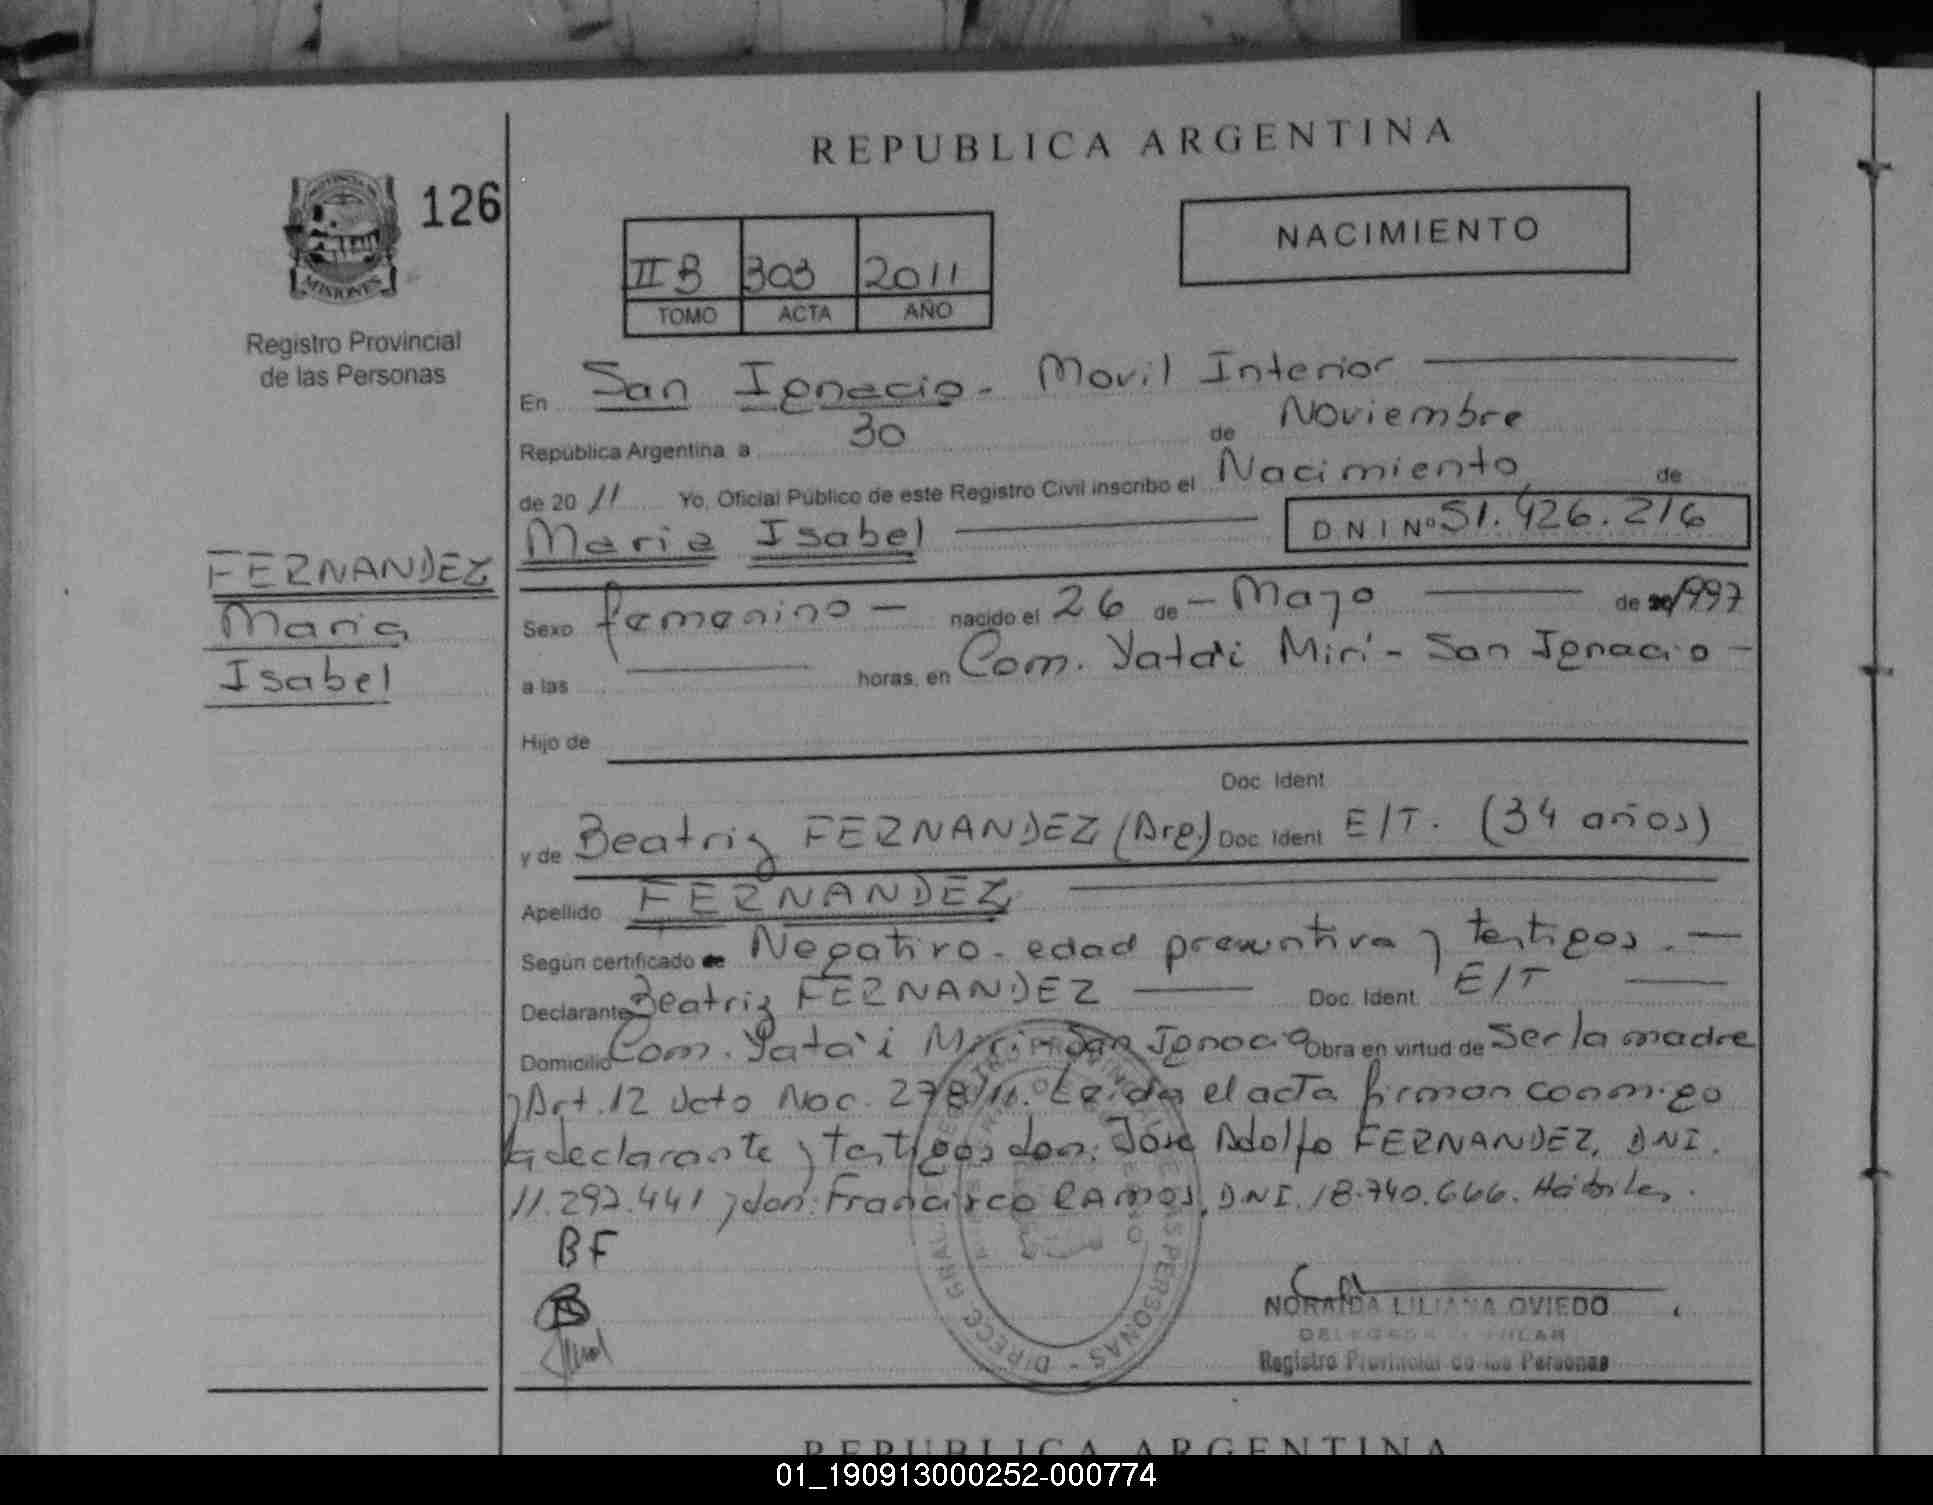 REPUBLICA ARGENTINA
126
NACIMIENTO
II B 303 2011
TOMO ACTA AÑO
MISIONES
Registro Provincial
de las Personas
En San Ignacio - Movil Interior
República Argentina a 30 de Noviembre
de 20 11 Yo, Oficial Público de este Registro Civil inscribo el Nacimiento de
Maria Isabel D N I Nº 51.426.216
FERNANDEZ
Maria
Isabel
Sexo femenino - nacido el 26 de - Mayo de 1997
a las horas, en Com. Yatai Miri - San Ignacio -
Hijo de
Doc. Ident.
y de Beatriz FERNANDEZ (Arg) Doc. Ident. E/T. (34 años)
Apellido FERNANDEZ
Según certificado de Negativo - edad presuntiva y testigos.
Declarante Beatriz FERNANDEZ Doc. Ident. E/T
Domicilio Com. Yata'i Miri - San Ignacio Obra en virtud de Ser la madre
y Art. 12 Dcto Nac. 278/11. Leida el acta firman conmigo
la declarante y testigos don: José Adolfo FERNANDEZ, DNI.
11.297.441 y don: Francisco RAMOS, DNI. 18.740.666. Hábiles.
BF
NORAIDA LILIANA OVIEDO
DELEGADA TITULAR
Registro Provincial de las Personas
REPUBLICA ARGENTINA
01_190913000252-000774